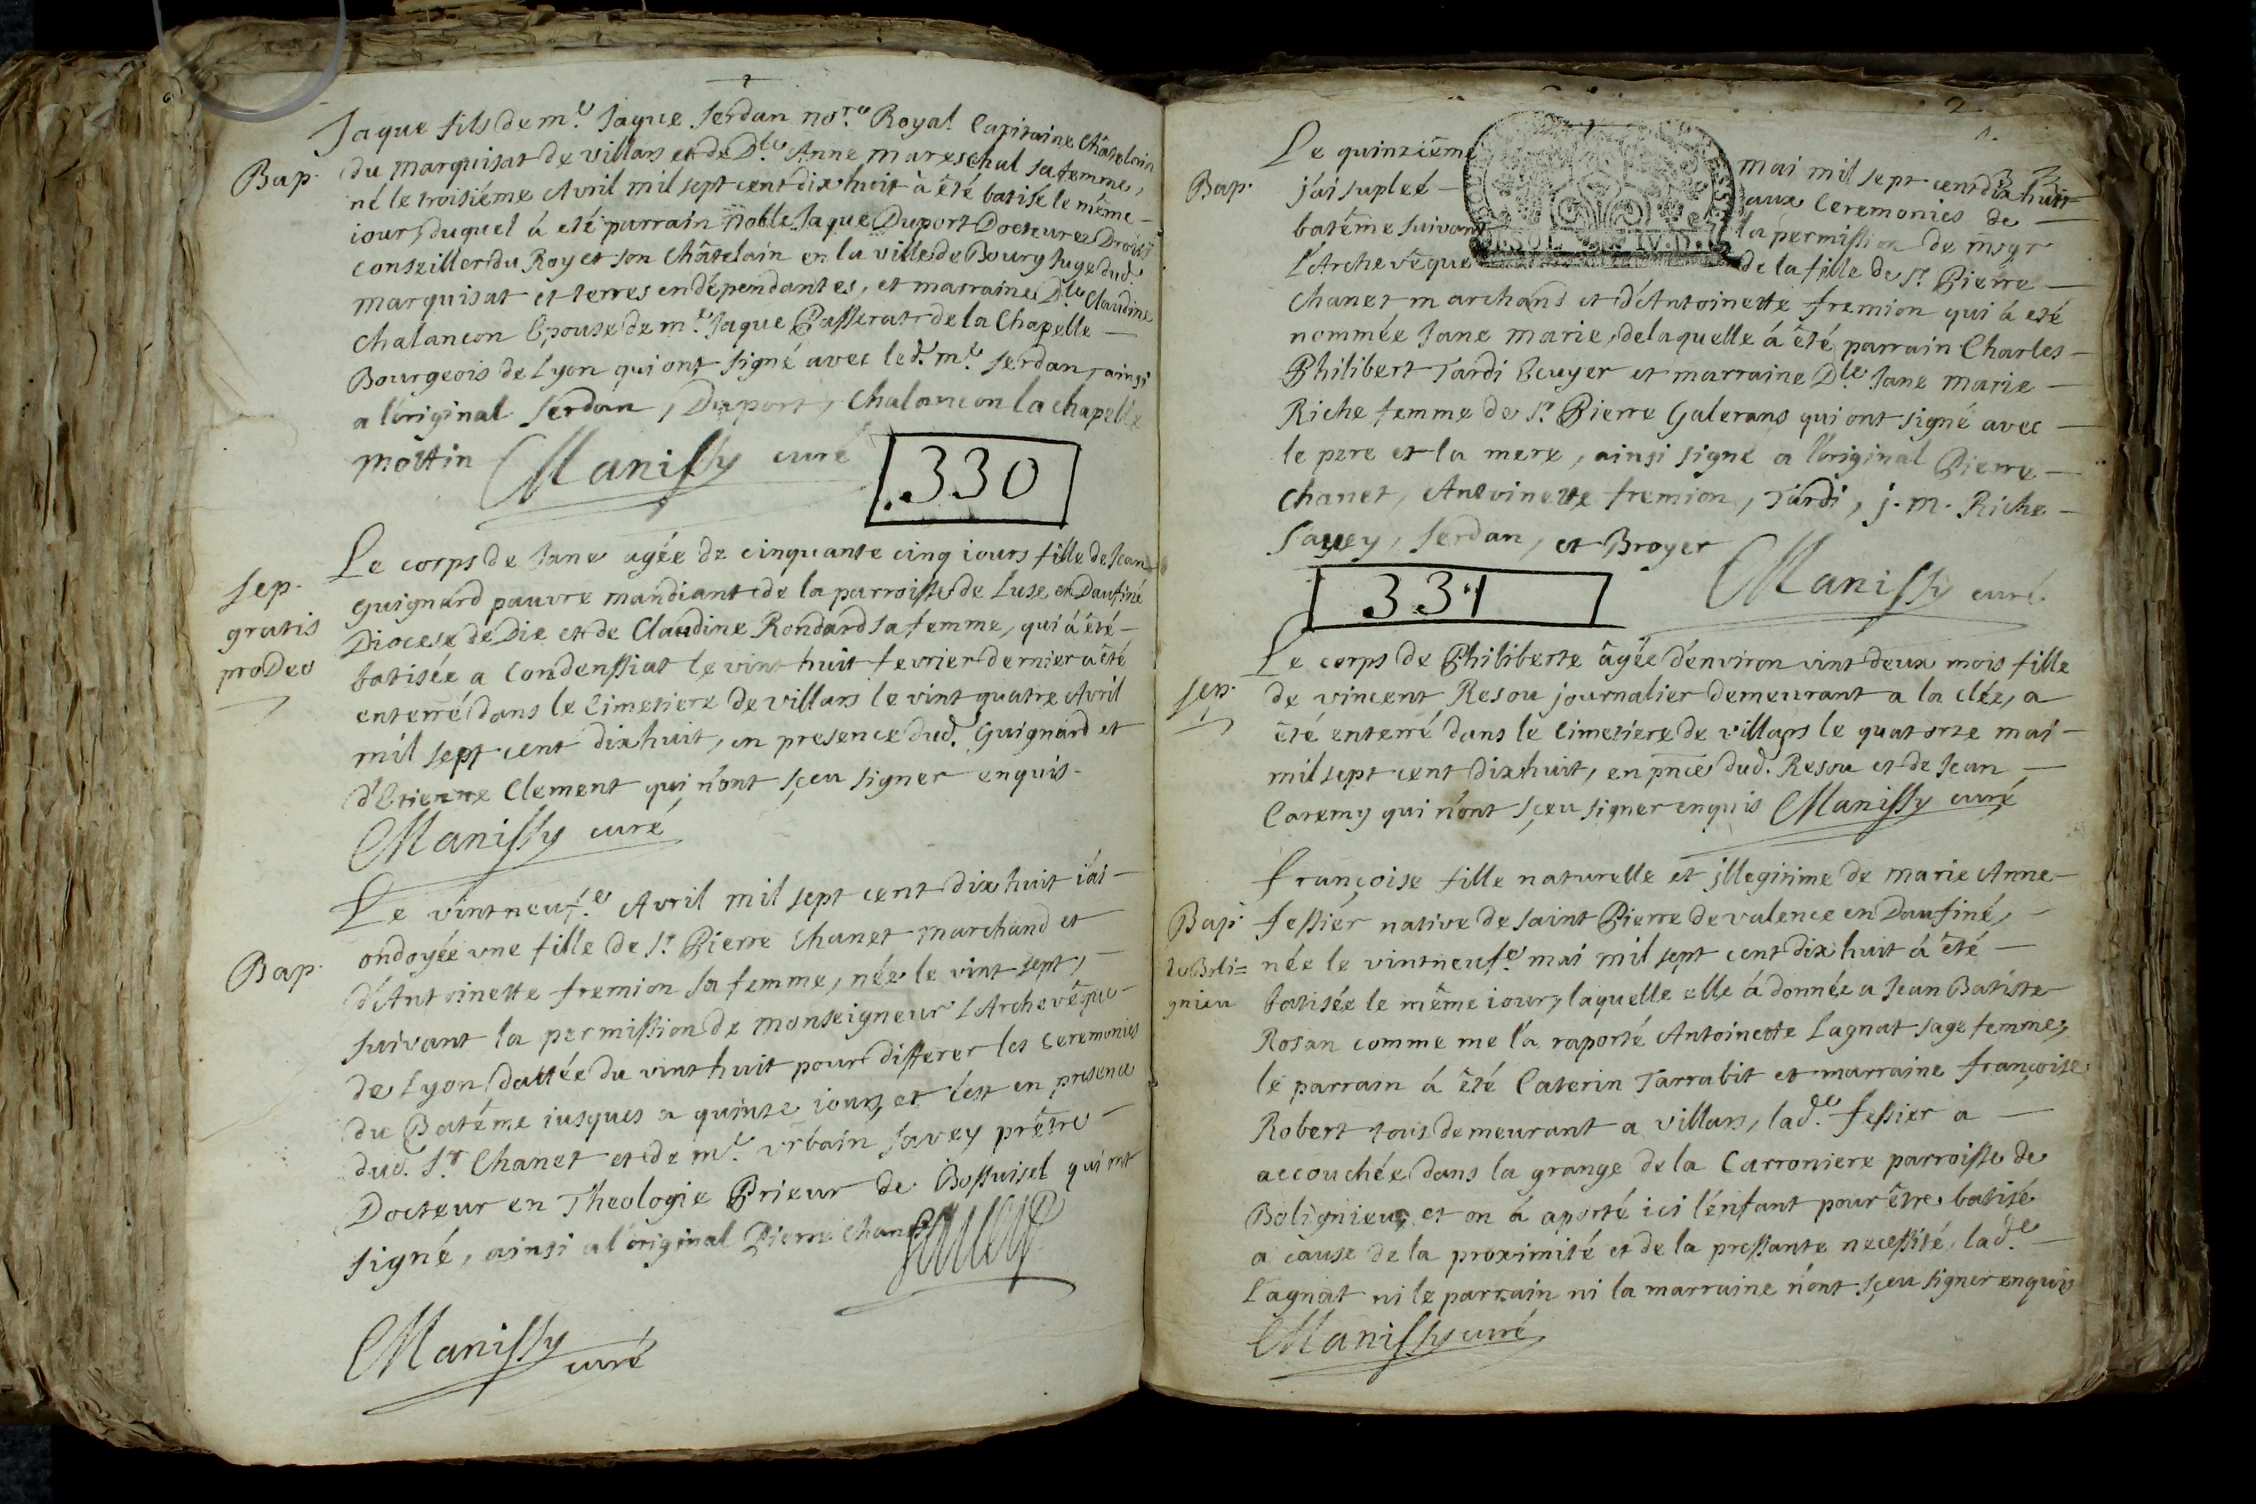 Jaque fils de m.e Jaque Serdan no.re Royal Capitaine Châtelain
Bap. du marquisat de villars et de D.lle Anne mareschal sa femme,
né le troisiéme Avril mil sept cent dix huit à êté batisé le même
iour, duquel á eté parrain noble Jaque Duport Docteur es Droits
conseiller du Roy et son Châtelain en la ville de Bourg Juge dud.
marquisat et terres en dépendantes, et marraine D.lle Claudine
Chalancon Epouse de m.e Jaque Passerat de la Chapelle
Bourgeois de Lyon qui ont signé avec led. m.e Serdan, ainsi
a l'original Serdan, Duport, Chalancon la chapelle
mottin Manissy curé
330
Le corps de Jane agée de cinquante cinq iours fille de Jean
Sep. gratis pro Deo
Guignard pauvre mandiant de la parroisse de Luse en Daufiné
Diocese de Die et de Claudine Rondard sa femme, qui á êté
batisée a Condenssiat le vint huit fevrier dernier a êté
enterré dans le Cimetiere de villars le vint quatre Avril
mil sept cent dix huit, en presence dud. Guignard et
d'Etienne Clement qui n'ont sçeu signer enquis.
Manissy curé
Le vint neuf.e Avril mil sept cent dix huit i'ai
Bap. ondoyée vne fille de S.r Pierre Chanet marchand et
d'Antoinette fremion sa femme, née le vint sept,
suivant la permission de monseigneur L'Archevêque
de Lyon dattée du vint huit pour differer les ceremonies
du Batême iusques a quinze iours, et c'est en presence
dud. S.r Chanet et de m.e vrbain Savey prêtre
Docteur en Theologie Prieur de Bossuisel qui ont
signé, ainsi a l'original Pierre Chanet
Savey
Manissy
curé
2
1.
Le quinziême mai mil sept cent dix huit
Bap. j'ai supleé aux Ceremonies de
batême suivant la permission de msgr
L'Archevêque de la fille de S.r Pierre
Chanet marchand et d'Antoinette fremion qui á eté
nommée Jane Marie, de laquelle á êté parrain Charles
Philibert Tardi Ecuyer et marraine D.lle Jane marie
Riche femme de S.r Pierre Galerans qui ont signé avec
le pere et la mere, ainsi signé a l'original Pierre
Chanet, Antoinette fremion, Tardi, j. m. Riche
Savey, Serdan, et Broyer
Manissy curé.
331
Le corps de Philiberte âgée d'environ vint deux mois fille
Sep. de vincent Resou journalier demeurant a la clée, a
êté enterré dans le Cimetiere de villars le quatorze mai
mil sept cent dix huit, en pnce dud. Resou et de Jean
Caremy qui n'ont sçeu signer enquis Manissy curé
françoise fille naturelle et jllegitime de marie Anne
Bap. de Boli=gnieu
fessier native de saint Pierre de valence en Daufiné,
née le vint neuf.e mai mil sept cent dix huit á êté
batisée le même iour, laquelle elle á donnée a Jean Batiste
Rosan comme me l'a raporté Antoinette Lagnat sage femme,
le parrain á êté Caterin Tarrabit et marraine françoise
Robert tous demeurant a villars, lad.e fessier a
accouchée dans la grange de la Carroniere parroisse de
Bolignieu, et on á aporté ici l'enfant pour être batisé
a cause de la proximité et de la pressante necessité, lad.e
Lagnat ni le parrain ni la marraine n'ont sçeu signer enquis
Manissy curé